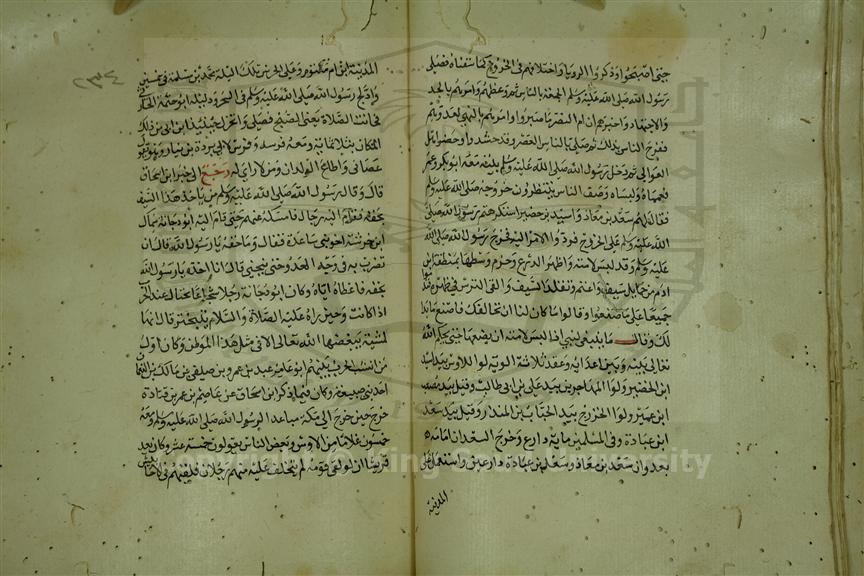 حتى اصبحوا وذكروا الرويا واختلافهم في الخروج كما سقناه فصلى
رسول الله صلى الله عليه وسلم الجمعة بالناس ثم وعظهم وامرهم بالجد
والاجتهاد واخبرهم ان لهم النصر ما صبروا وامرهم بالتهيئ لعدوهم
ففرح الناس بذلك ثم صلى بالناس العصر وقد حشدوا وحضر اهل
العوالي ثم دخل رسول الله صلى الله عليه وسلم بيته معه ابو بكر وعمر
فعمماه ولبساه وصف الناس ينتظرون خروجه صلى الله عليه وسلم
فقال لهم سعد بن معاذ واسيد بن حضير استكرهتم رسول الله صلى
الله عليه وسلم على الخروج فردوا الامر اليه فخرج رسول الله صلى الله
عليه وسلم وقد لبس لامته واظهر الدرع وحزم وسطها بمنطقة من
ادم من حمايل سيف واعتم وتقلد السيف والقى الترس في ظهره فندموا
جميعا على ما صنعوا وقالوا ما كان لنا ان نخالفك فاصنع ما بدا
لك وقال ما ينبغي لنبي اذا لبس لامته ان يضعها حتى يحكم الله
تعالى بينه وبين اعدائه وعقد ثلاثة الوية لوا للاوس بيد اسيد
ابن الحضير ولوا المهاجرين بيد علي بن ابي طالب وقيل بيد مصعب
ابن عمير ولوا الخزرج بيد الحباب بن المنذر وقيل بيد سعد
ابن عبادة وفي المسلمين ماية دارع وخرج السعدان امامه
يعدوان سعد بن معاذ وسعد بن عبادة دارعين واستعمل على
المدينة
المدينة ابن ام مكتوم وعلى الحرس تلك الليلة محمد بن مسلمة في خمسين
وادلج رسول الله صلى الله عليه وسلم في السحر ودليله ابو حثمة الحارثي
فحانت الصلاة يعني الصبح فصلى وانخزل حينئذ ابن ابي من ذلك
المكان بثلاثماية ومعه فرسه وفرس لابي بردة بن نيار وهو يقول
عصاني واطاع الولدان ومن لا راي له رجع الى خبر ابن اسحاق
قال وقال رسول الله صلى الله عليه وسلم من ياخذ هذا السيف
بحقه فقام اليه رجال فامسكه عنهم حتى قام اليه ابو دجانة سماك
ابن خرشة اخو بني ساعدة فقال وما حقه يا رسول الله قال ان
تضرب به في وجه العدو حتى ينحني قال انا اخذه يا رسول الله
بحقه فاعطاه اياه وكان ابو دجانة رجلا شجاعا يختال عند الحرب
اذا كانت وحين راه عليه الصلاة والسلام يتبختر قال انها
لمشية يبغضها الله تعالى الا في مثل هذا الموطن وكان اول
من انشب الحرب بينهم ابو عامر عبد بن عمرو بن صيفي بن مالك بن النعمان
احد بني ضبيعة وكان فيما ذكر ابن اسحاق عن عاصم بن عمر بن قتادة
خرج حين خرج الى مكة مباعدا لرسول الله صلى الله عليه وسلم ومعه
خمسون غلاما من الاوس وبعض الناس يقولون خمسة عشر وكان يعد
قريشا ان لو لقي قومه لم يتخلف عليه منهم رجلان فلقيهم في الاحابيش
King Saud University